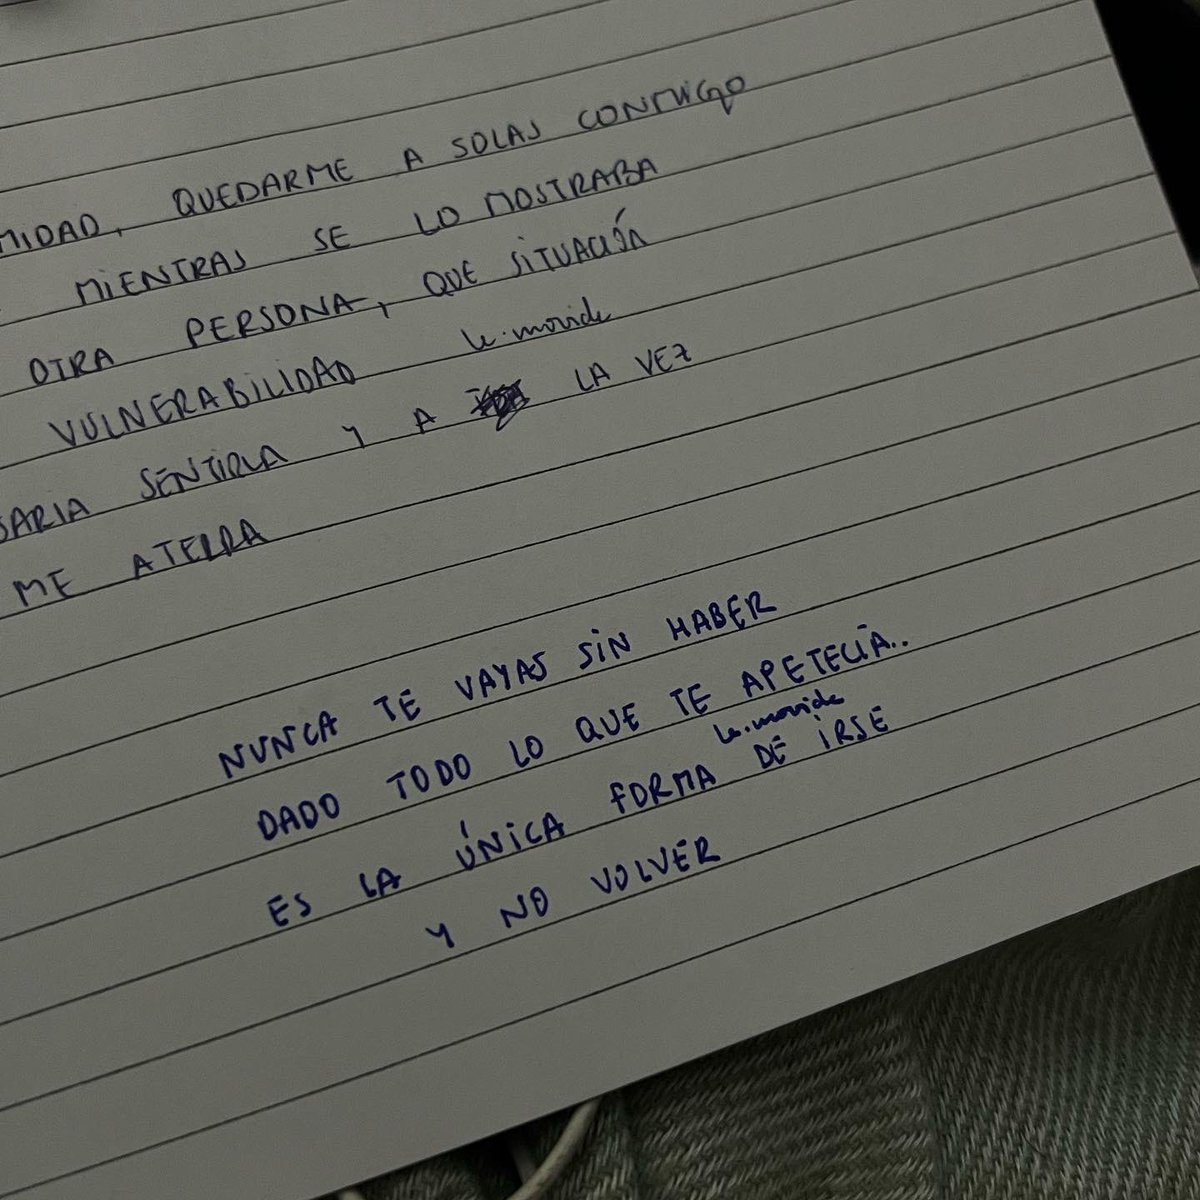 MIDAD, QUEDARME A SOLAS CONMIGO
MIENTRAS SE LO MOSTRABA
OTRA PERSONA, QUE SITUACIÓN
VULNERABILIDAD
SARIA SENTIRLA Y A LA VEZ
ME ATERRA
NUNCA TE VAYAS SIN HABER
DADO TODO LO QUE TE APETECÍA..
ES LA ÚNICA FORMA DE IRSE
Y NO VOLVER